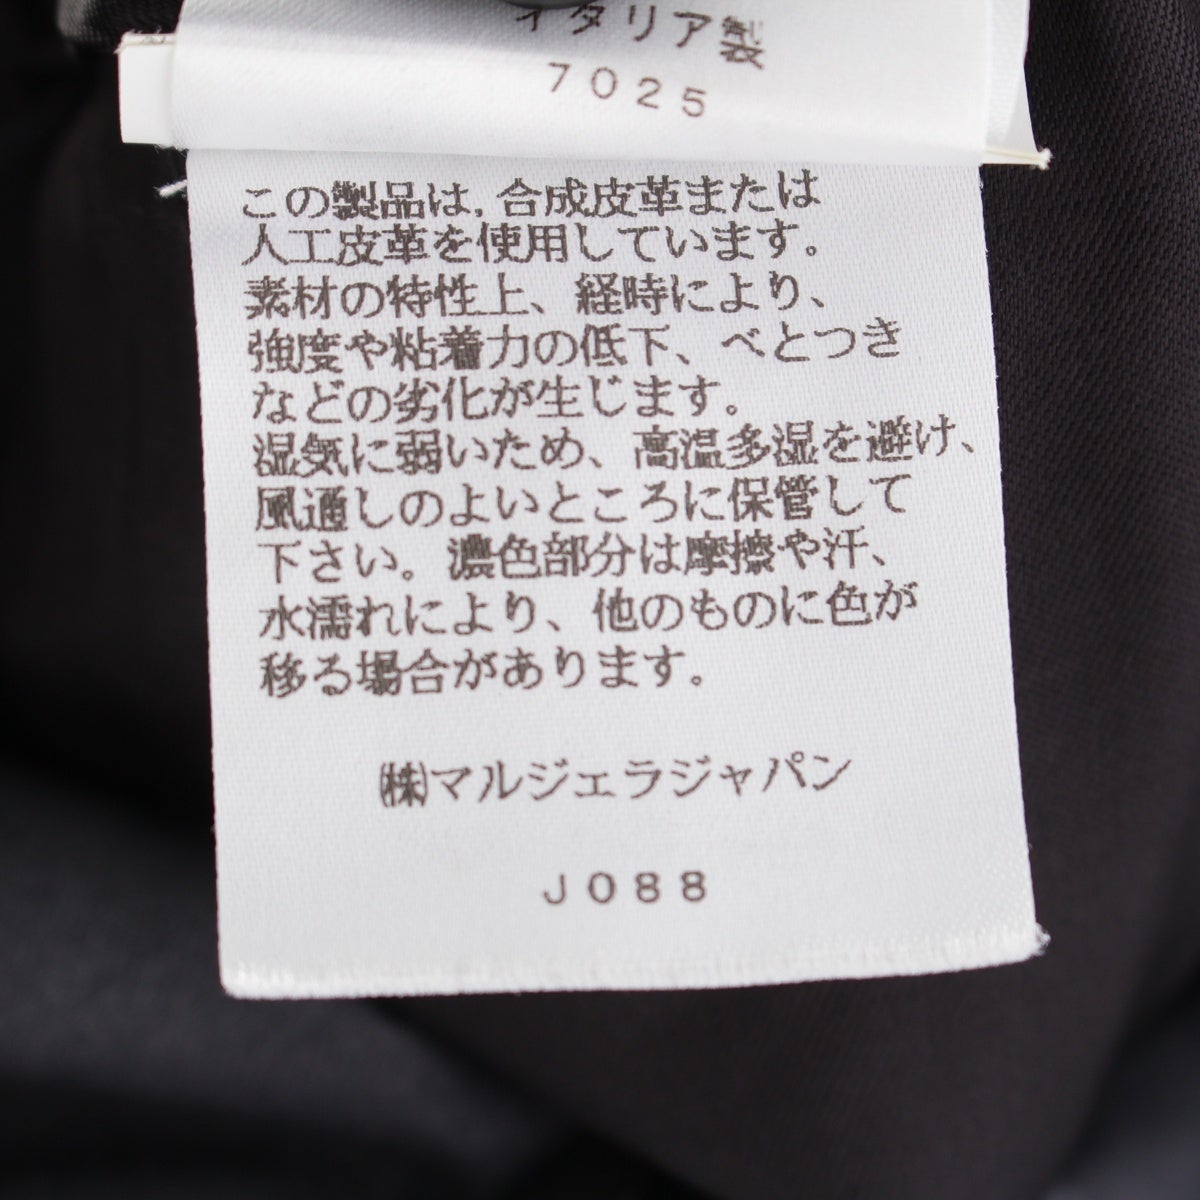 イタリア製
7025
この製品は,合成皮革または
人工皮革を使用しています。
素材の特性上、経時により、
強度や粘着力の低下、べとつき
などの劣化が生じます。
湿気に弱いため、高温多湿を避け、
風通しのよいところに保管して
下さい。濃色部分は摩擦や汗、
水濡れにより、他のものに色が
移る場合があります。
㈱マルジェラジャパン
J088